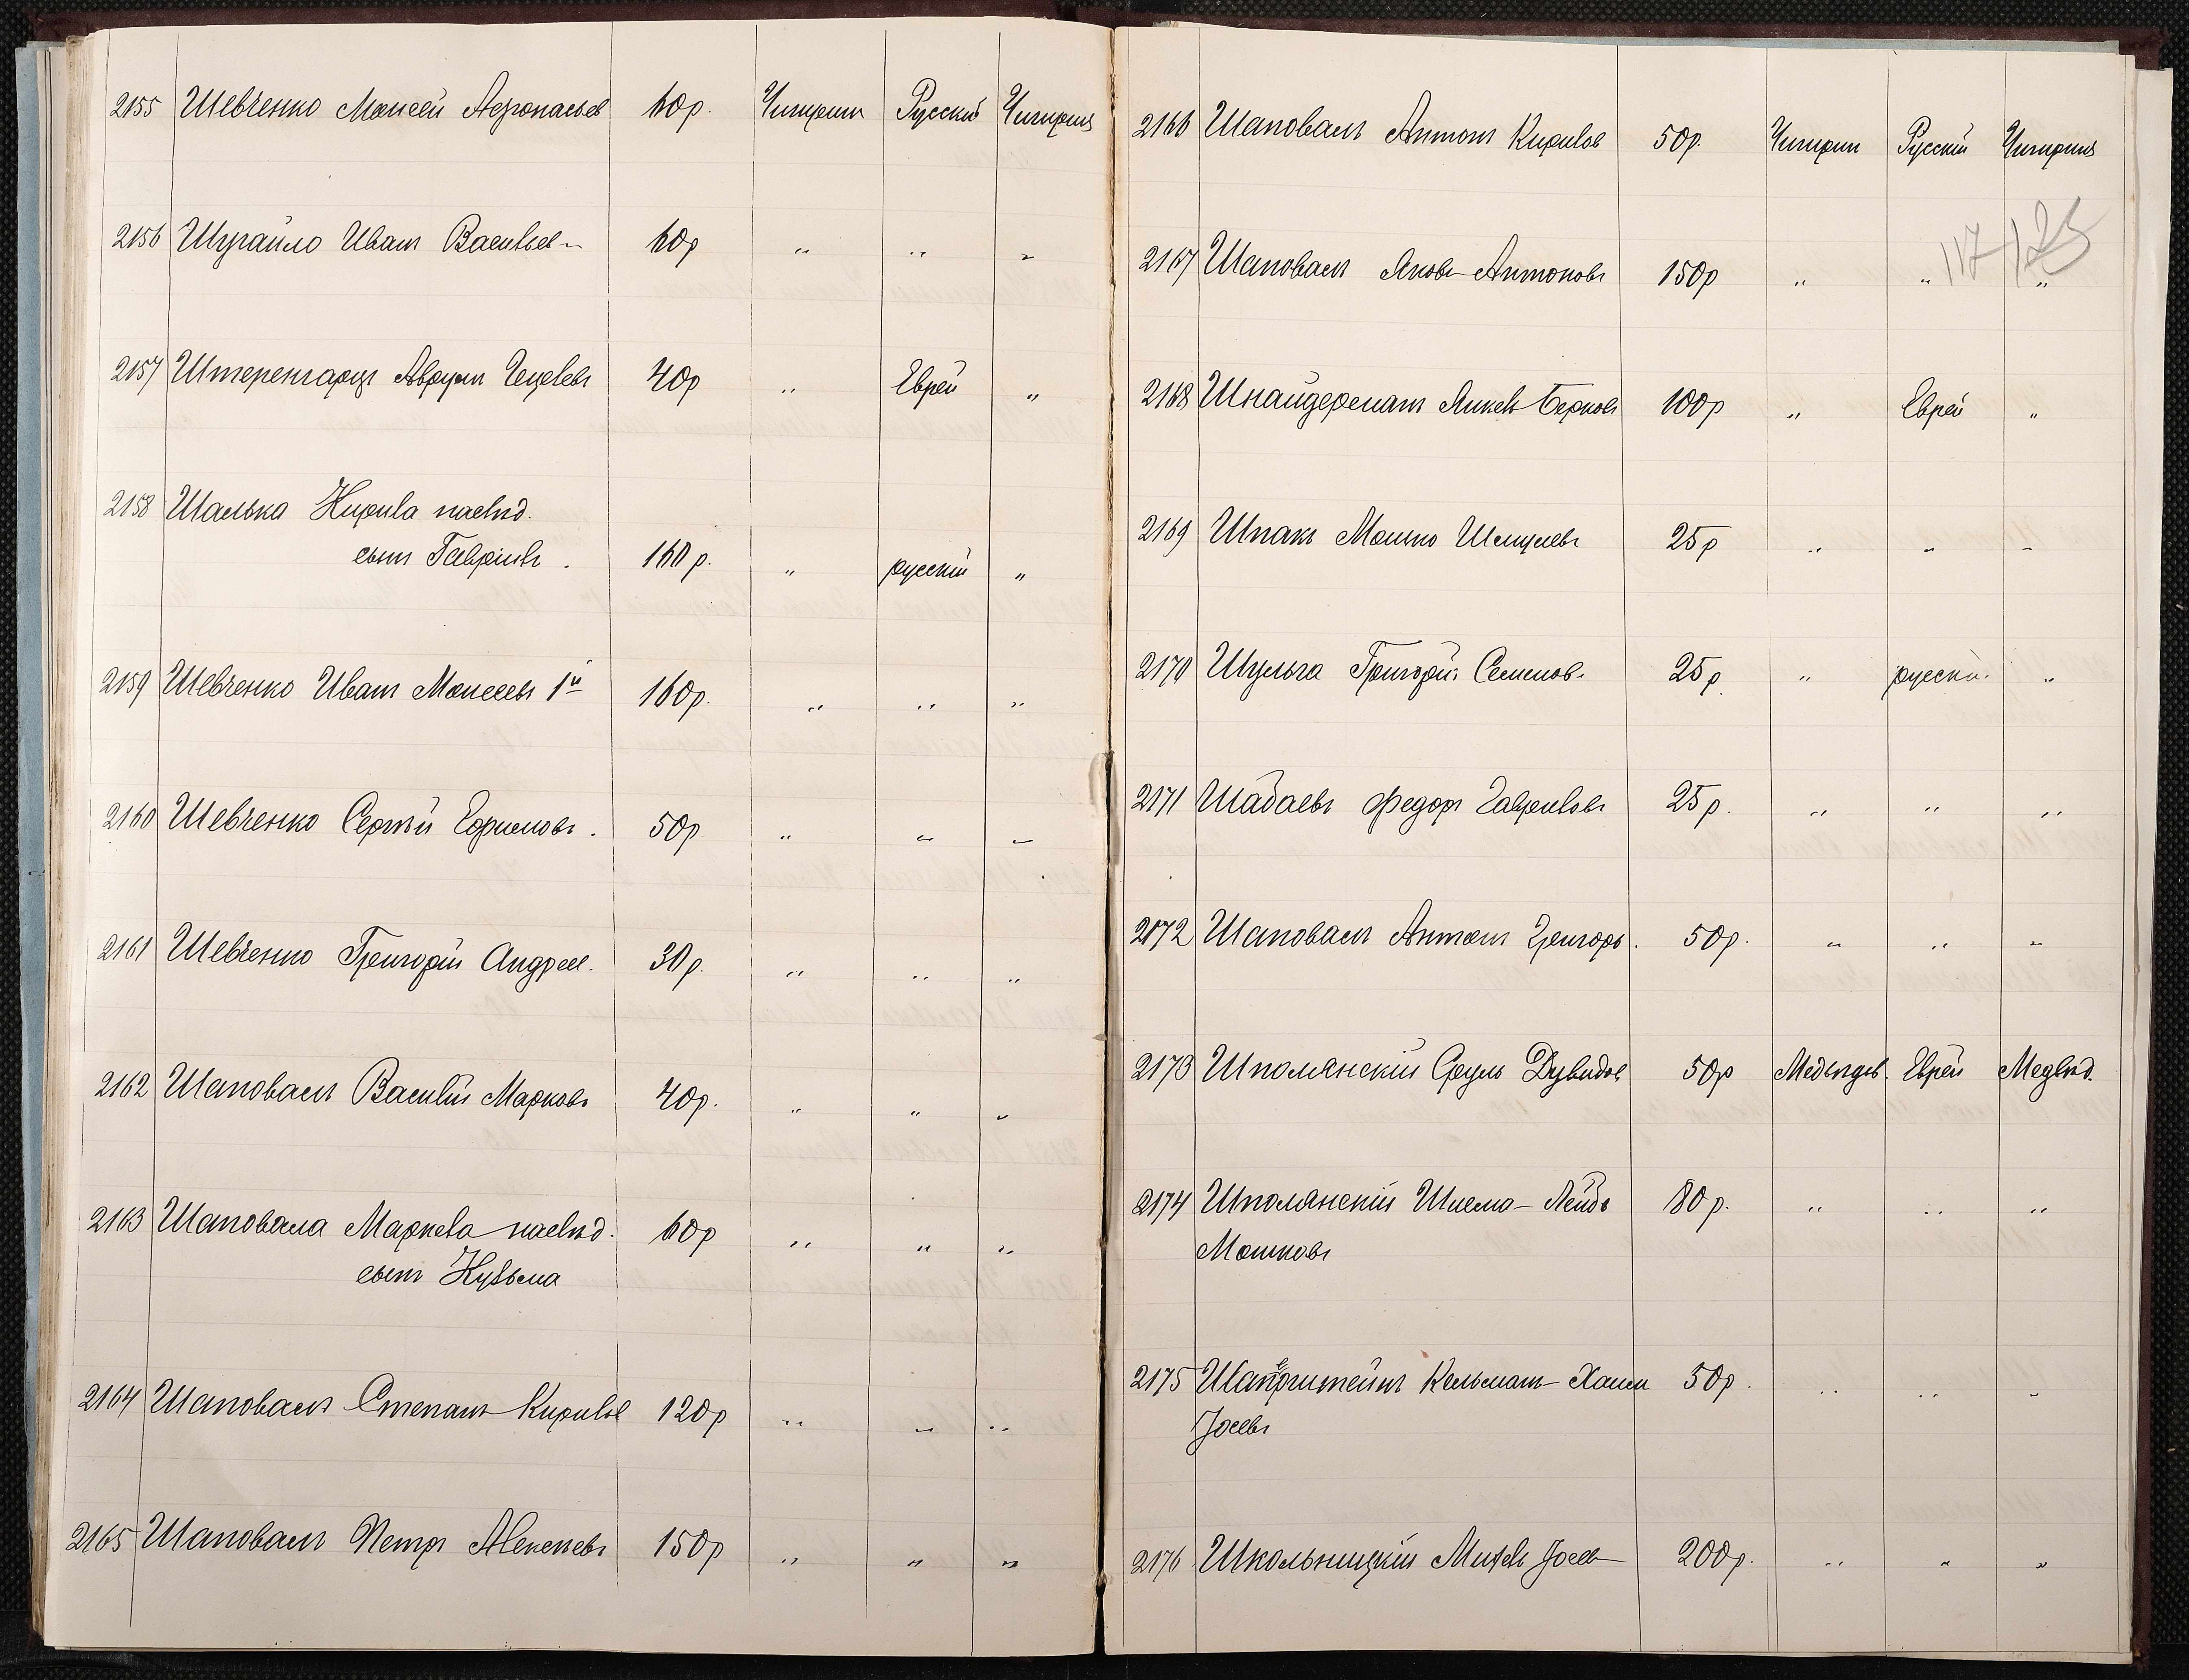 2155 Шевченко Моисей Афонасьев 60р. Чигирин Русскій Чигиринѣ
2156 Шугайло Иван Васильев 60р „ „ „
2157 Штеренгарцъ Аврумъ 40р „ Еврей „
2158 Шалька Кирила наслѣд.
сынъ Гавріилъ. 160р. „ русскій „
2159 Шевченко Иванъ Моисеевъ 1й 160р. „ „ „
2160 Шевченко Сергѣй Ефимовъ. 50р „ „ „
2161 Шевченко Григорій Андреев. 30р. „ „ „
2162 Шаповалъ Василій Марковъ 40р. „ „ „
2163 Шаповала Маркела наслѣд. 60р „ „ „
сынъ Кузьма
2164 Шаповалъ Степанъ Кирилов 120р „ „ „
2165 Шаповалъ Петръ Алексѣевъ 150р „ „ „
2166 Шаповалъ Антонъ Кирилов 50р. Чигирин Русскій Чигиринѣ
117 125
2167 Шаповалъ Яковъ Антоновъ 150р „ „ „
2168 Шнайдерманъ Янкель Берков 100р „ Еврей „
2169 Шпакъ Мошко Шмулевъ 25р „ „ „
2170 Шульга Григорій Семенов. 25р. „ русскі. „
2171 Шабаевъ Федоръ Гавриловъ 25р. „ „ „
2172 Шаповалъ Антонъ Григорь. 50р. „ „ „
2173 Шполянскій Сруль Дувидов 50р Медвѣдов. Еврей Медвѣд.
2174 Шполянскій Шлема-Лейбъ 80р. „ „ „
Мошковъ
2175 Кельманъ-Хаим 50р. „ „ „
Іосевъ
2176 Школьницкій Михель Іосев 200р. „ „ „